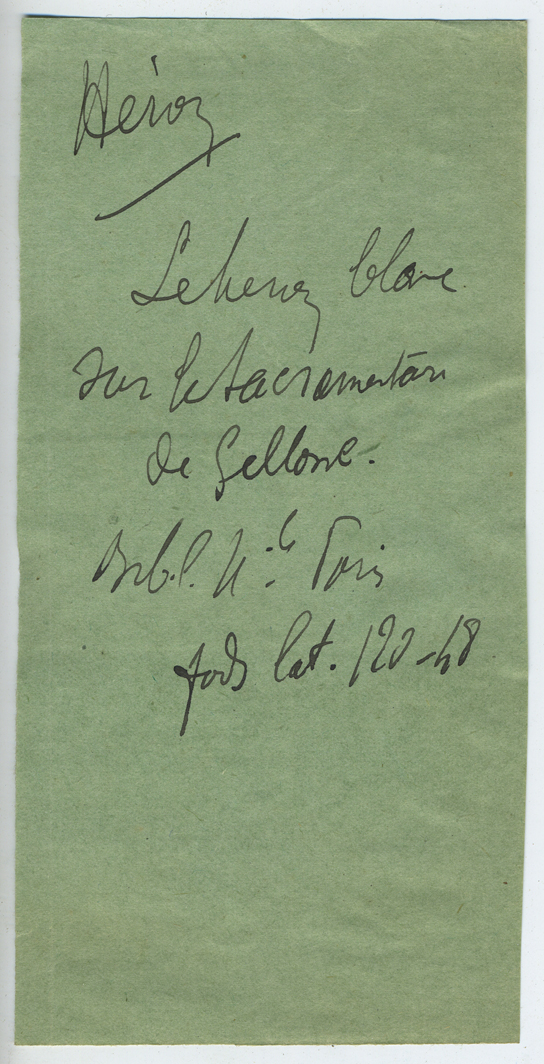 Héron
Le heron blanc
sur le sacramentaire
de Gellone.
Bibl. N.le Paris
fods lat. 120-48